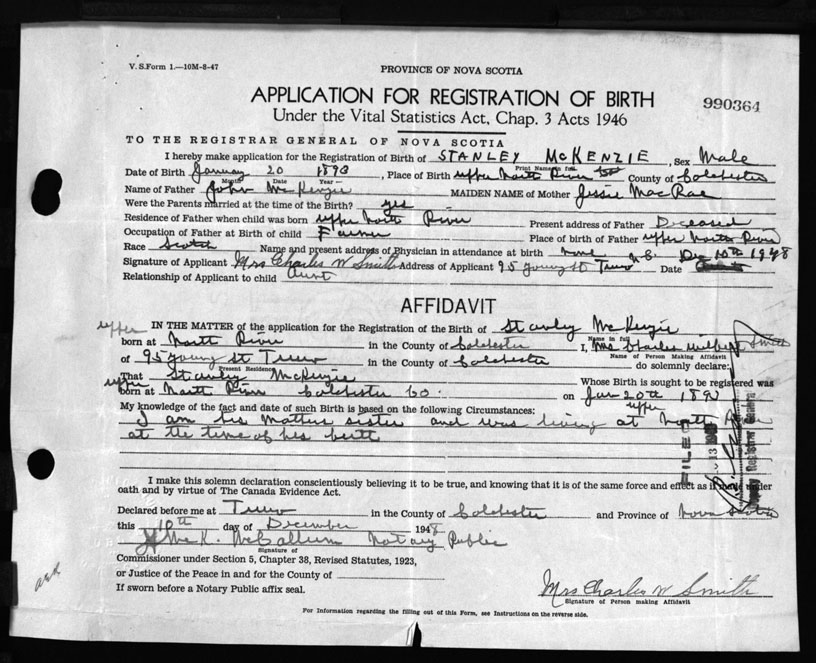 V. S. Form 1.—10M-8-47
PROVINCE OF NOVA SCOTIA
APPLICATION FOR REGISTRATION OF BIRTH
990364
Under the Vital Statistics Act, Chap. 3 Acts 1946
TO THE REGISTRAR GENERAL OF NOVA SCOTIA
I hereby make application for the Registration of Birth of STANLEY McKENZIE, Sex Male
Print Name in full
Date of Birth January 20 1893, Place of Birth upper North River County of Colchester
Month Date Year
Name of Father John McKenzie MAIDEN NAME of Mother Jessie MacRae
Were the Parents married at the time of the Birth? yes
Residence of Father when child was born upper North River Present address of Father Deceased
Occupation of Father at Birth of child Farmer Place of birth of Father upper North River
Race Scotch Name and present address of Physician in attendance at birth none
Signature of Applicant Mrs Charles W Smith Address of Applicant 95 young st Truro N.S. Date Dec 10th 1948
Relationship of Applicant to child Aunt
AFFIDAVIT
upper IN THE MATTER of the application for the Registration of the Birth of Stanley McKenzie
Name in full
born at North River in the County of Colchester I, Mrs Charles Wilbert Smith
Name of Person Making Affidavit
of 95 young St Truro in the County of Colchester do solemnly declare:
Present Residence
That Stanley McKenzie Whose Birth is sought to be registered was
upper
born at North River Colchester Co. on Jan 20th 1893
My knowledge of the fact and date of such Birth is based on the following Circumstances:
upper
I am his mothers sister and was living at North River
at the time of his birth
FILED
Deputy Registrar General
I make this solemn declaration conscientiously believing it to be true, and knowing that it is of the same force and effect as if made under
oath and by virtue of The Canada Evidence Act.
Declared before me at Truro in the County of Colchester and Province of Nova Scotia
this 10th day of December 1948
McK. McCallum Notary Public
Signature of
Commissioner under Section 5, Chapter 38, Revised Statutes, 1923,
or Justice of the Peace in and for the County of
If sworn before a Notary Public affix seal.
Mrs Charles W Smith
Signature of Person making Affidavit
For Information regarding the filling out of this Form, see Instructions on the reverse side.